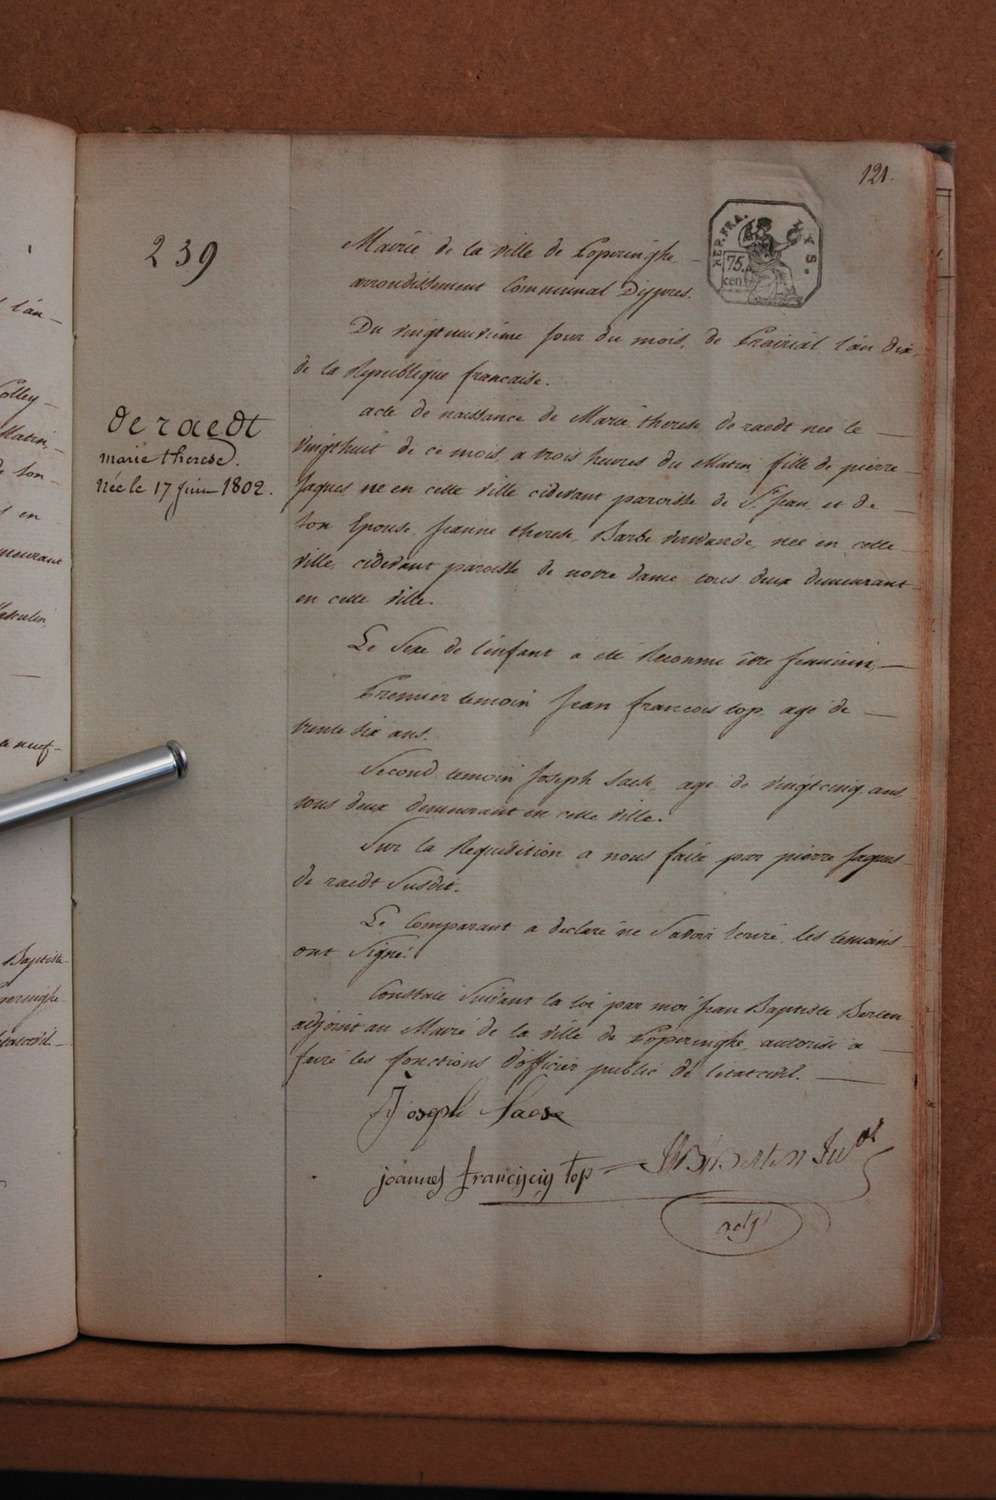 121.
239
REP. FRA.
LYS.
75.
cen
Mairie de la ville de Poperinghe
arrondissement Communal Dijpres.
Du vingtneuvieme jour du mois, de Prairial l'an dix,
de la Republique francaise.
de raedt
marie therese.
Née le 17 juin 1802.
acte de naissance de Marie therese de raedt née le
vingthuit de ce mois a trois heures du Matin fille de pierre
Jaques né en cette ville cidevant paroisse de St Jean et de
son Epouse Jeanne therese Barbe née en cette
ville, cidevant paroisse de notre dame tous deux demeurant
en cette ville.
Le Sexe de l'enfant a été Reconnu être feminin,
Premier temoin Jean francois top, age de
trente six ans.
Second temoin Joseph Saese, age de vingtcinq ans
tous deux demeurant en cette ville.
Sur la Requisition a nous faite par pierre Jaques
de raedt Susdit.
Le Comparant a declaré ne Savoir Ecrire, les temoins
ont Signé.
Constaté Suivant la loi par moi Jean Baptiste Berten
adjoint au Maire de la ville de Poperinghe, autorisé a
faire les fonctions d'officier public de l'etatcivil.
Joseph Saese
joannes franciscus top
J B Berten
adjt
l'an
Colley
Matin,
de son
en
demeurant
Masculin,
a neuf
Baptiste
Poperinghe
l'etatcivil.